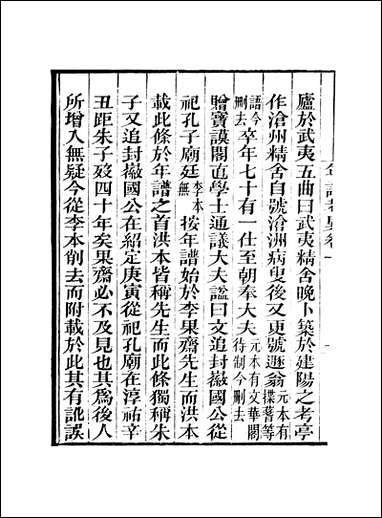 廬於武夷五曲曰武夷精舍晚卜築於建陽之考亭
作滄州精舍自號滄洲病叟後又更號遯翁元本有揲蓍等
語今刪去卒年七十有一仕至朝奉大夫元本有文華閣待制今刪去
贈寶謨閣直學士通議大夫謚曰文追封徽國公從
祀孔子廟廷李本無按年譜始於李果齋先生而洪本
載此條於年譜之首洪本皆稱先生而此條獨稱朱
子又追封徽國公在紹定庚寅從祀孔廟在淳祐辛
丑距朱子歿四十年矣果齋必不及見也其為後人
所增入無疑今從李本削去而附載於此其有訛誤
年譜考異卷一